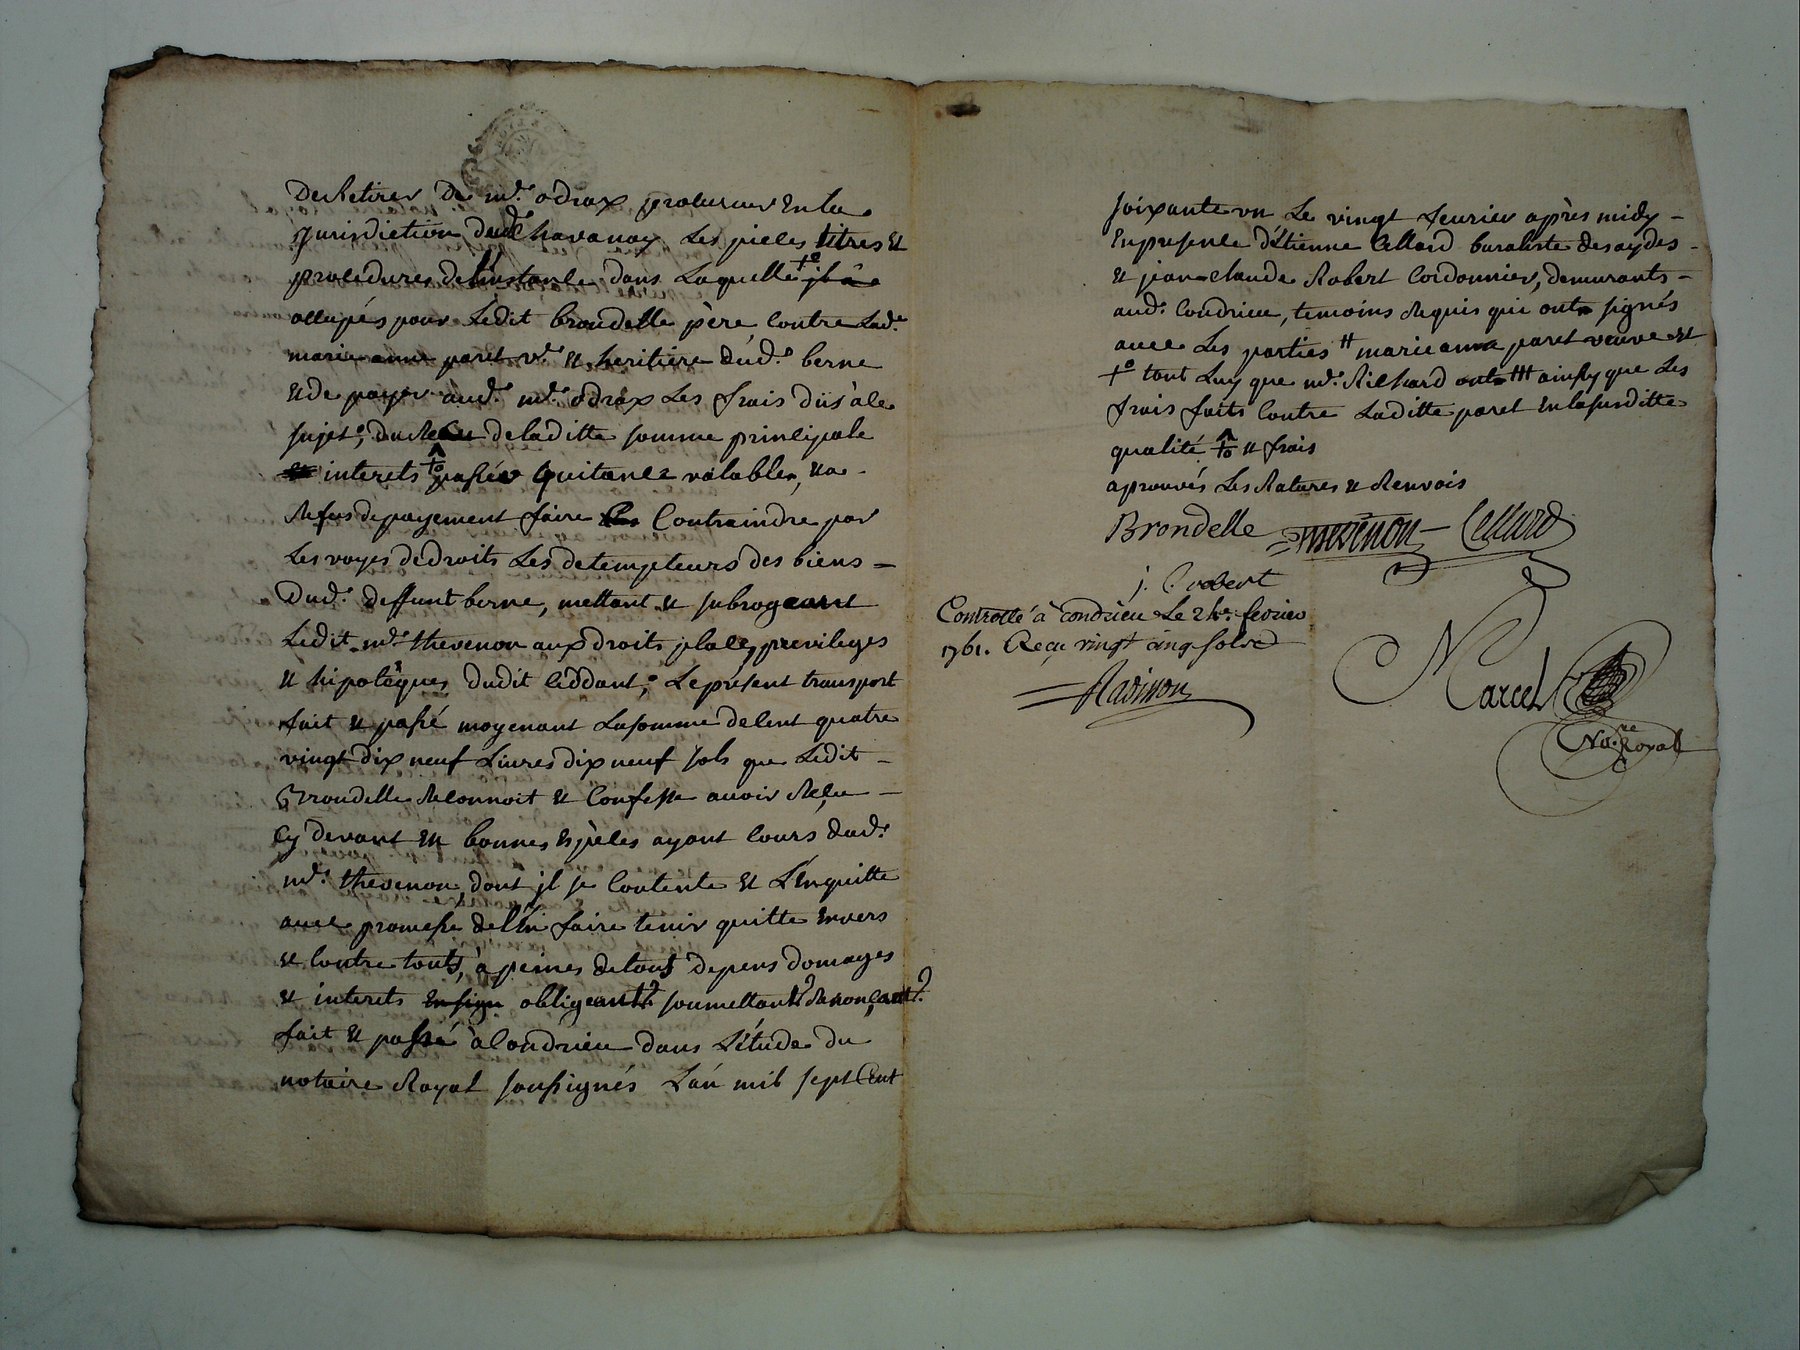 de Retirer de mr. odrax procureur en la
jurisdiction dud. Chavanay Les pieces titres et
procedures de l'instance dans Laquelle +o il a
occupés pour Ledit brondelle père contre Lade.
marie anne paret ve. et heritiere dud. berne
et de payer aud. mr. odrax Les frais dûs à ce
sujet, du Recu de laditte somme principale
et interets +o passer quitance valable, et a
Refus de payement faire contraindre par
Les voyes de droits Les detempteurs des biens
dud. deffunt berne, mettant et subrogeant
Ledit mr. thevenon aux droits place, previleges
et hipotèques dudit cèddant, Le présent transport
fait et passé moyenant La somme de cent quatre
vingt dix neuf Livres dix neuf sols que Ledit
Brondelle Reconnoit et confesse avoir Reçu
cy devant en bonnes espèces ayant cours dud.
mr. thevenon dont il se contente et L'enquitte
avec promesse de l'en faire tenir quitte envers
et contre touts, à peines de tous depens domages
et interets en sign obligeant? soumettant? Renonçant?
fait et passé à Condrieu dans L'étude du
notaire Royal soussignés L'an mil sept Cent
soixante un Le vingt fevrier après midy
en presence d'Etienne Cellard buraliste des aydes
et jean claude Robert cordonnier, demurants
aud. Condrieu, temoins Requis qui ont signés
avec Les parties # marie anne paret veuve et
+o tant Luy que mr. Richard ont ainsy que Les
frais faits contre Laditte paret en la susditte
qualité +o et frais
aprouvés Les Ratures et Renvois
Brondelle thevenon Cellard
j. Robert
Controllé à Condrieu Le 24e. fevrier
1761. Reçu vingt cinq sols
Marcel
No.re Royal